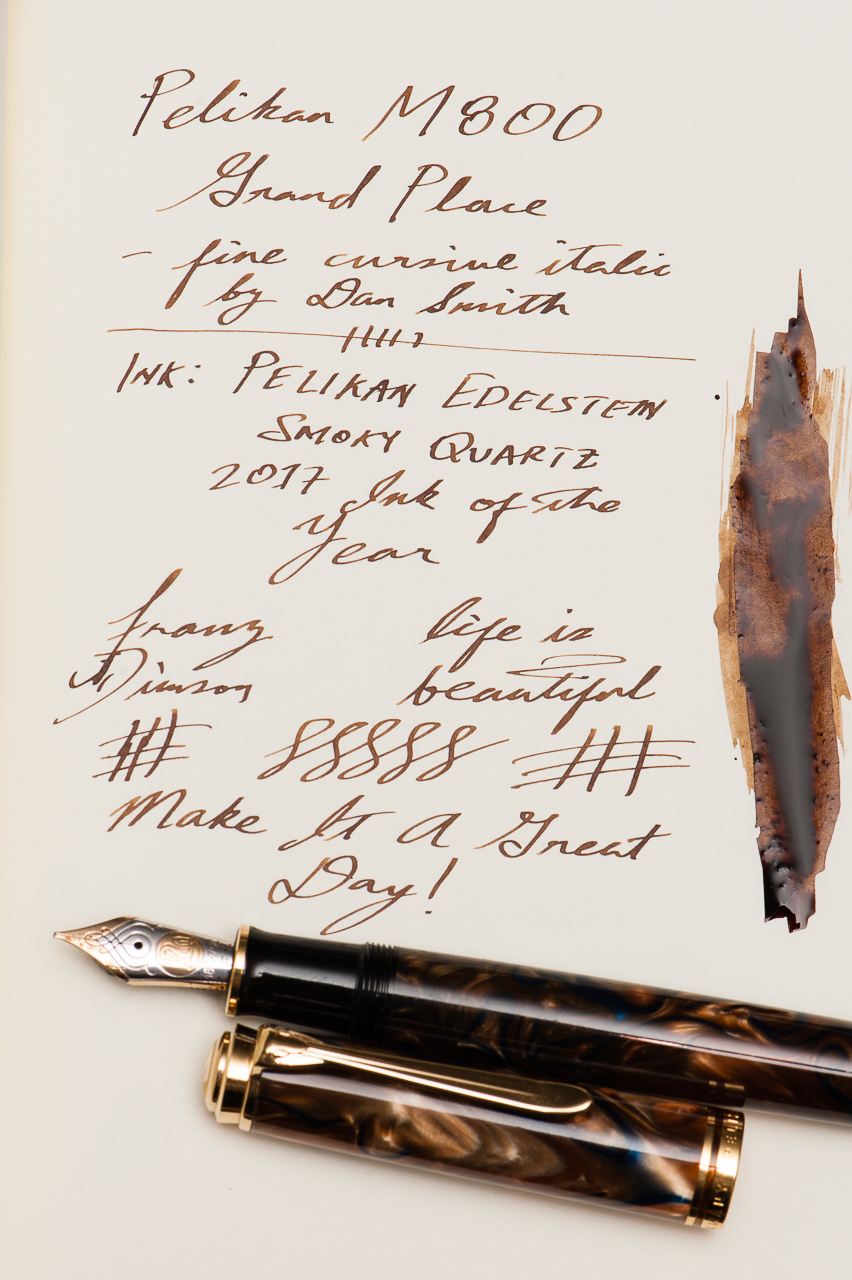 Pelikan M800
Grand Place
- fine cursive italic
by Dan Smith
INK: PELIKAN EDELSTEIN
SMOKY QUARTZ
2017 Ink of the
Year
franz life is
Dimson beautiful
Make It A Great
Day!